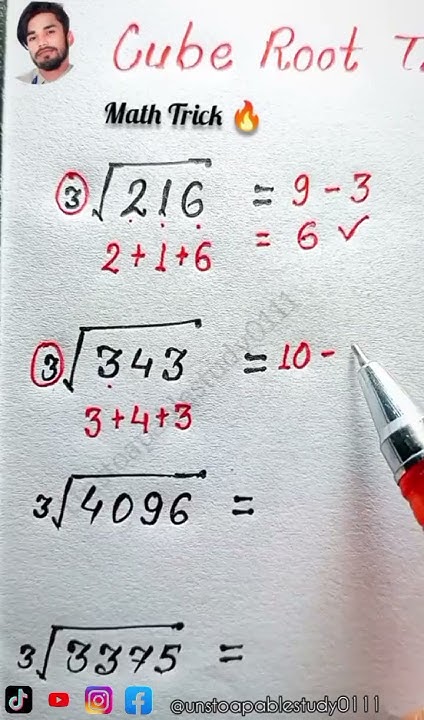 Cube Root T
Math Trick 🔥
3√216 = 9 - 3
2 + 1 + 6 = 6 ✓
3√343 = 10 -
3 + 4 + 3
3√4096 =
3√3375 =
@unstoapablestudy0111